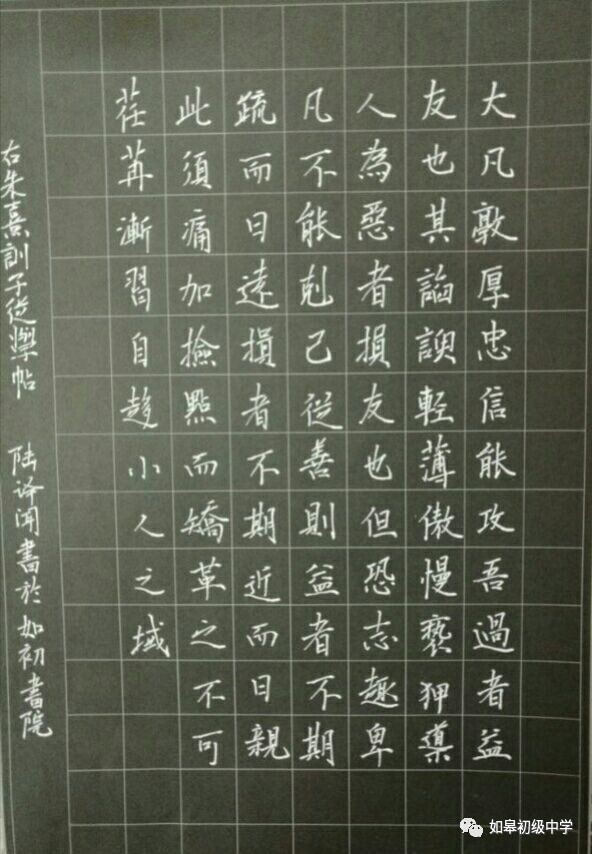 大凡敦厚忠信能攻吾過者益
友也其諂諛輕薄傲慢褻狎導
人為惡者損友也但恐志趣卑
凡不能剋己從善則益者不期
疏而日遠損者不期近而日親
此須痛加撿點而矯革之不可
荏苒漸習自趍小人之域
右朱熹訓子從學帖 陆译闻書於如初書院
如皋初级中学